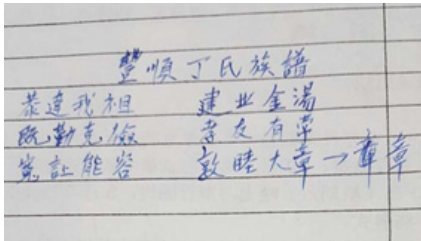 豐順丁氏族譜
恭達我祖 建业金湯
既勤克儉 孝友有常
寬讓能容 敦睦大章→章章